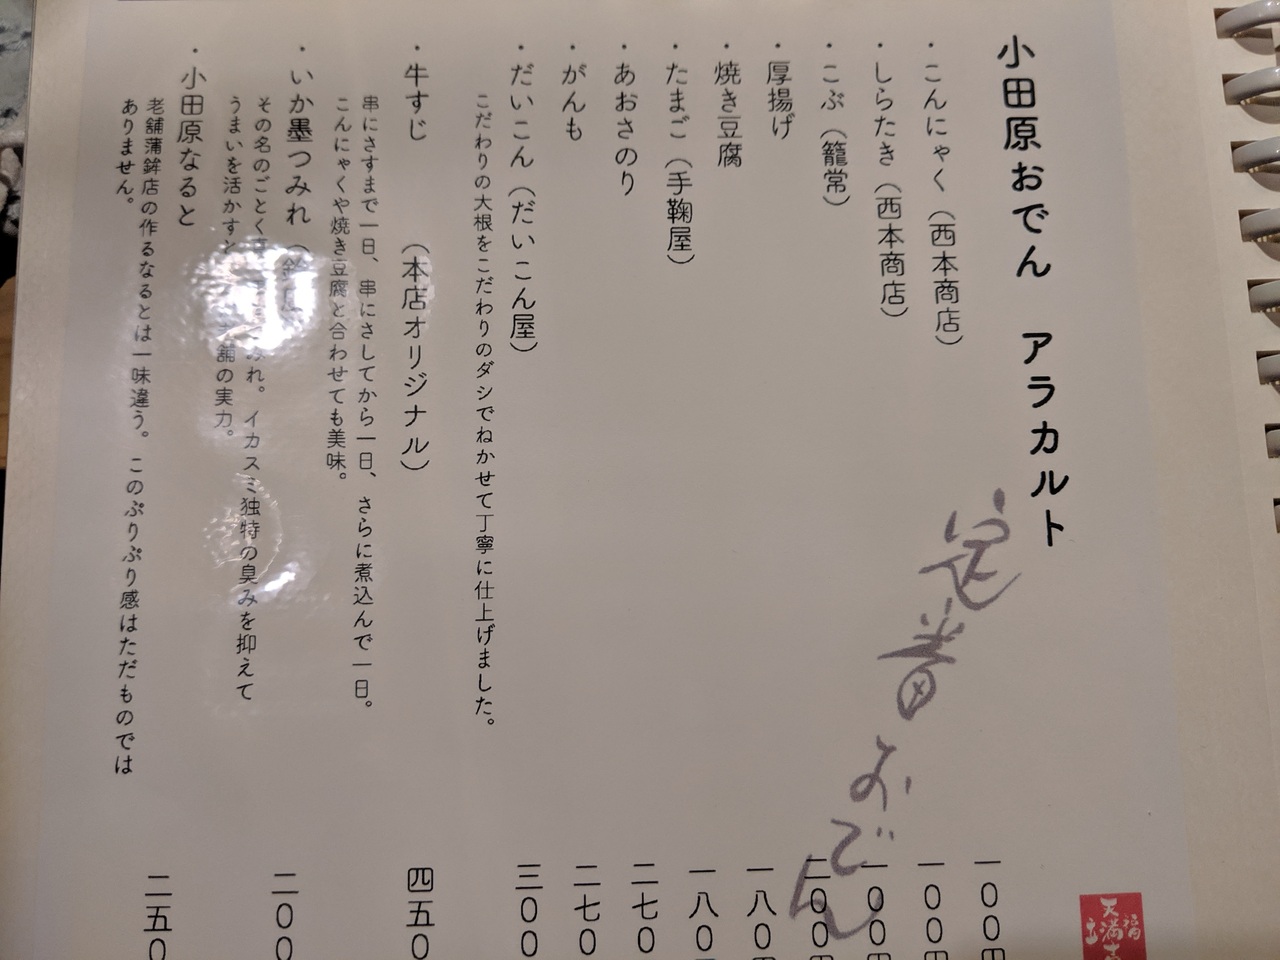 小田原おでん　アラカルト
定番おでん
・こんにゃく（西本商店）　一〇〇円
・しらたき（西本商店）　一〇〇円
・こぶ（籠常）　一〇〇円
・厚揚げ　二〇〇円
・焼き豆腐　一八〇円
・たまご（手鞠屋）　一八〇
・あおさのり　二七〇
・がんも　二七〇
・だいこん（だいこん屋）　三〇〇
こだわりの大根をこだわりのダシでねかせて丁寧に仕上げました。
・牛すじ　（本店オリジナル）　四五〇
串にさすまで一日、串にさしてから一日、さらに煮込んで一日。
こんにゃくや焼き豆腐と合わせても美味。
・いか墨つみれ　二〇〇
その名のごとく　れ。イカスミ独特の臭みを抑えて
うまいを活かす　舗の実力。
・小田原なると　二五〇
老舗蒲鉾店の作るなるとは一味違う。このぷりぷり感はただものでは
ありません。